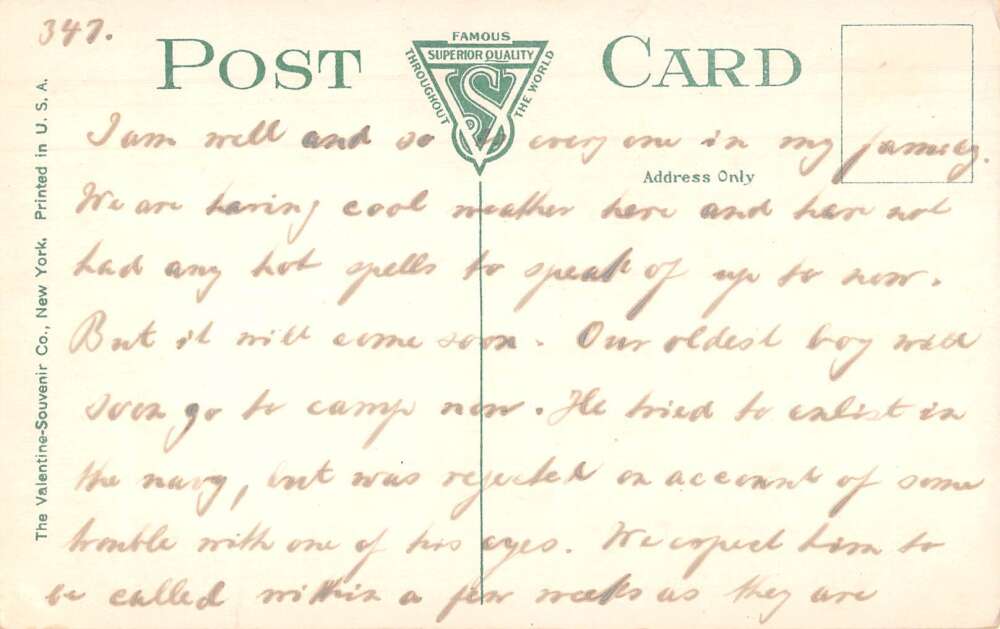 347.
POST CARD
FAMOUS
SUPERIOR QUALITY
THROUGHOUT THE WORLD
VS
Address Only
The Valentine-Souvenir Co., New York. Printed in U. S. A.
I am well and so is every one in my family.
We are having cool weather here and have not
had any hot spells to speak of up to now.
But it will come soon. Our oldest boy will
soon go to camp now. He tried to enlist in
the navy, but was rejected on account of some
trouble with one of his eyes. We expect him to
be called within a few weeks as they are